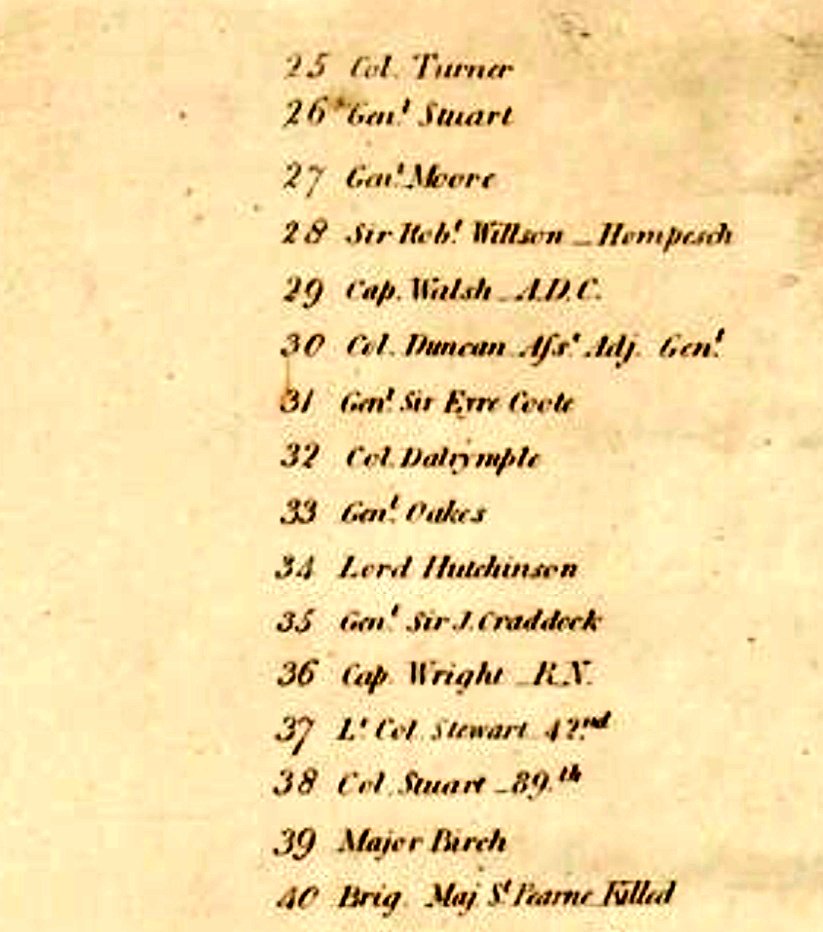 25 Col. Turner
26 Gen.t Stuart
27 Gen.t Moore
28 Sir Rob.t Willson _ Hompesch
29 Cap. Walsh _ A.D.C.
30 Col. Duncan Aſs.t Adj. Gen.t
31 Gen.t Sir Eyre Coote
32 Col. Dalrymple
33 Gen.t Oakes
34 Lord Hutchinson
35 Gen.t Sir J. Craddock
36 Cap. Wright _ R.N.
37 L.t Col. Stewart _ 42.nd
38 Col. Stuart _ 89.th
39 Major Birch
40 Brig. Maj S.t Pearne Killed